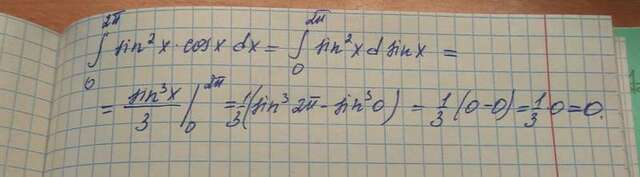 ∫₀²ᵖⁱ sin² x · cos x dx = ∫₀²ᵖⁱ sin² x d sin x =
= sin³ x / 3 |₀²ᵖⁱ = 1/3 (sin³ 2π - sin³ 0) = 1/3 (0-0) = 1/3 0 = 0.